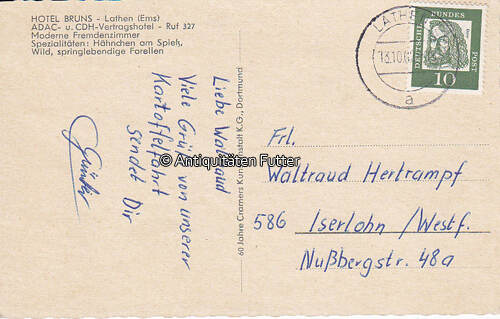 HOTEL BRUNS - Lathen (Ems)
ADAC- u. CDH-Vertragshotel - Ruf 327
Moderne Fremdenzimmer
Spezialitäten: Hähnchen am Spieß,
Wild, springlebendige Forellen
Liebe Waltraud
Viele Grüße von unserer
Kartoffelfahrt
sendet Dir
Günter
60 Jahre Cramers Kunstanstalt K.G., Dortmund
© Antiquitäten Futter
LATHEN
13.10.6
a
DEUTSCHE BUNDESPOST
10
Frl.
Waltraud Hertrampf
586 Iserlohn/Westf.
Nußbergstr. 48a